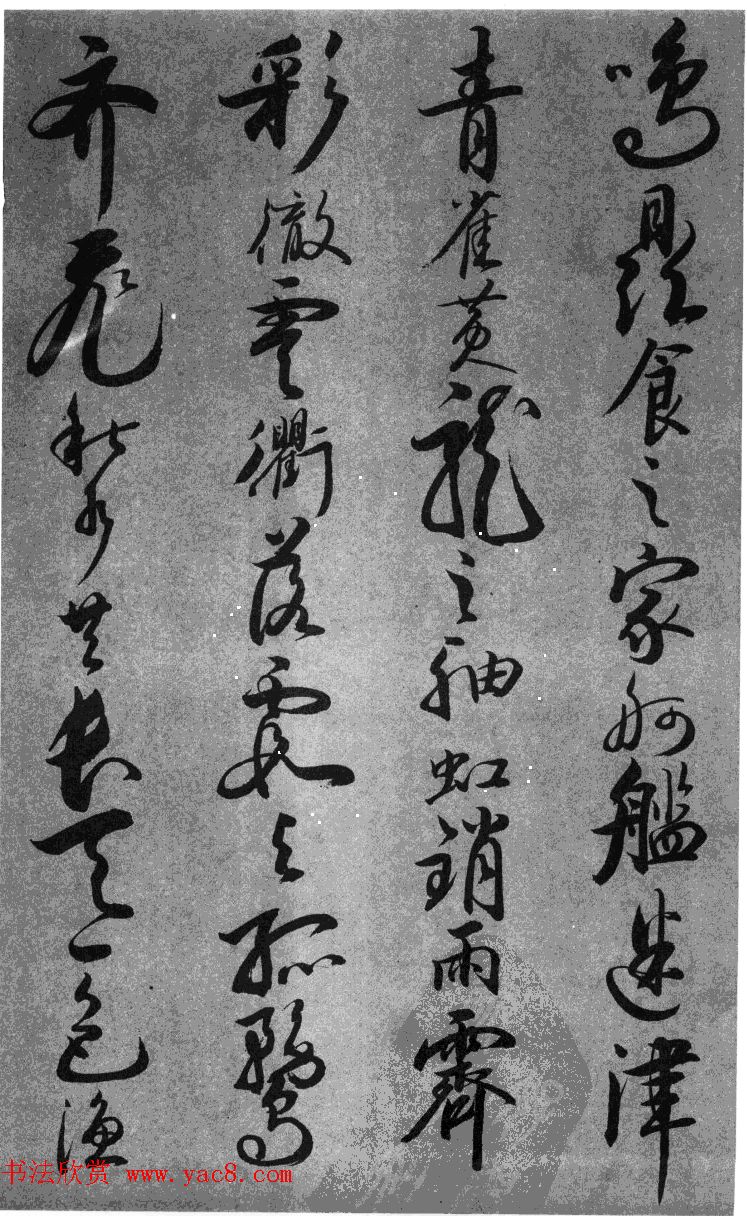 鳴鼎食之家舸艦迷津
青雀黃龍之舳虹銷雨霽
彩徹雲衢落霞與孤鶩
齊飛秋水共長天一色漁
书法欣赏 www.yac8.com